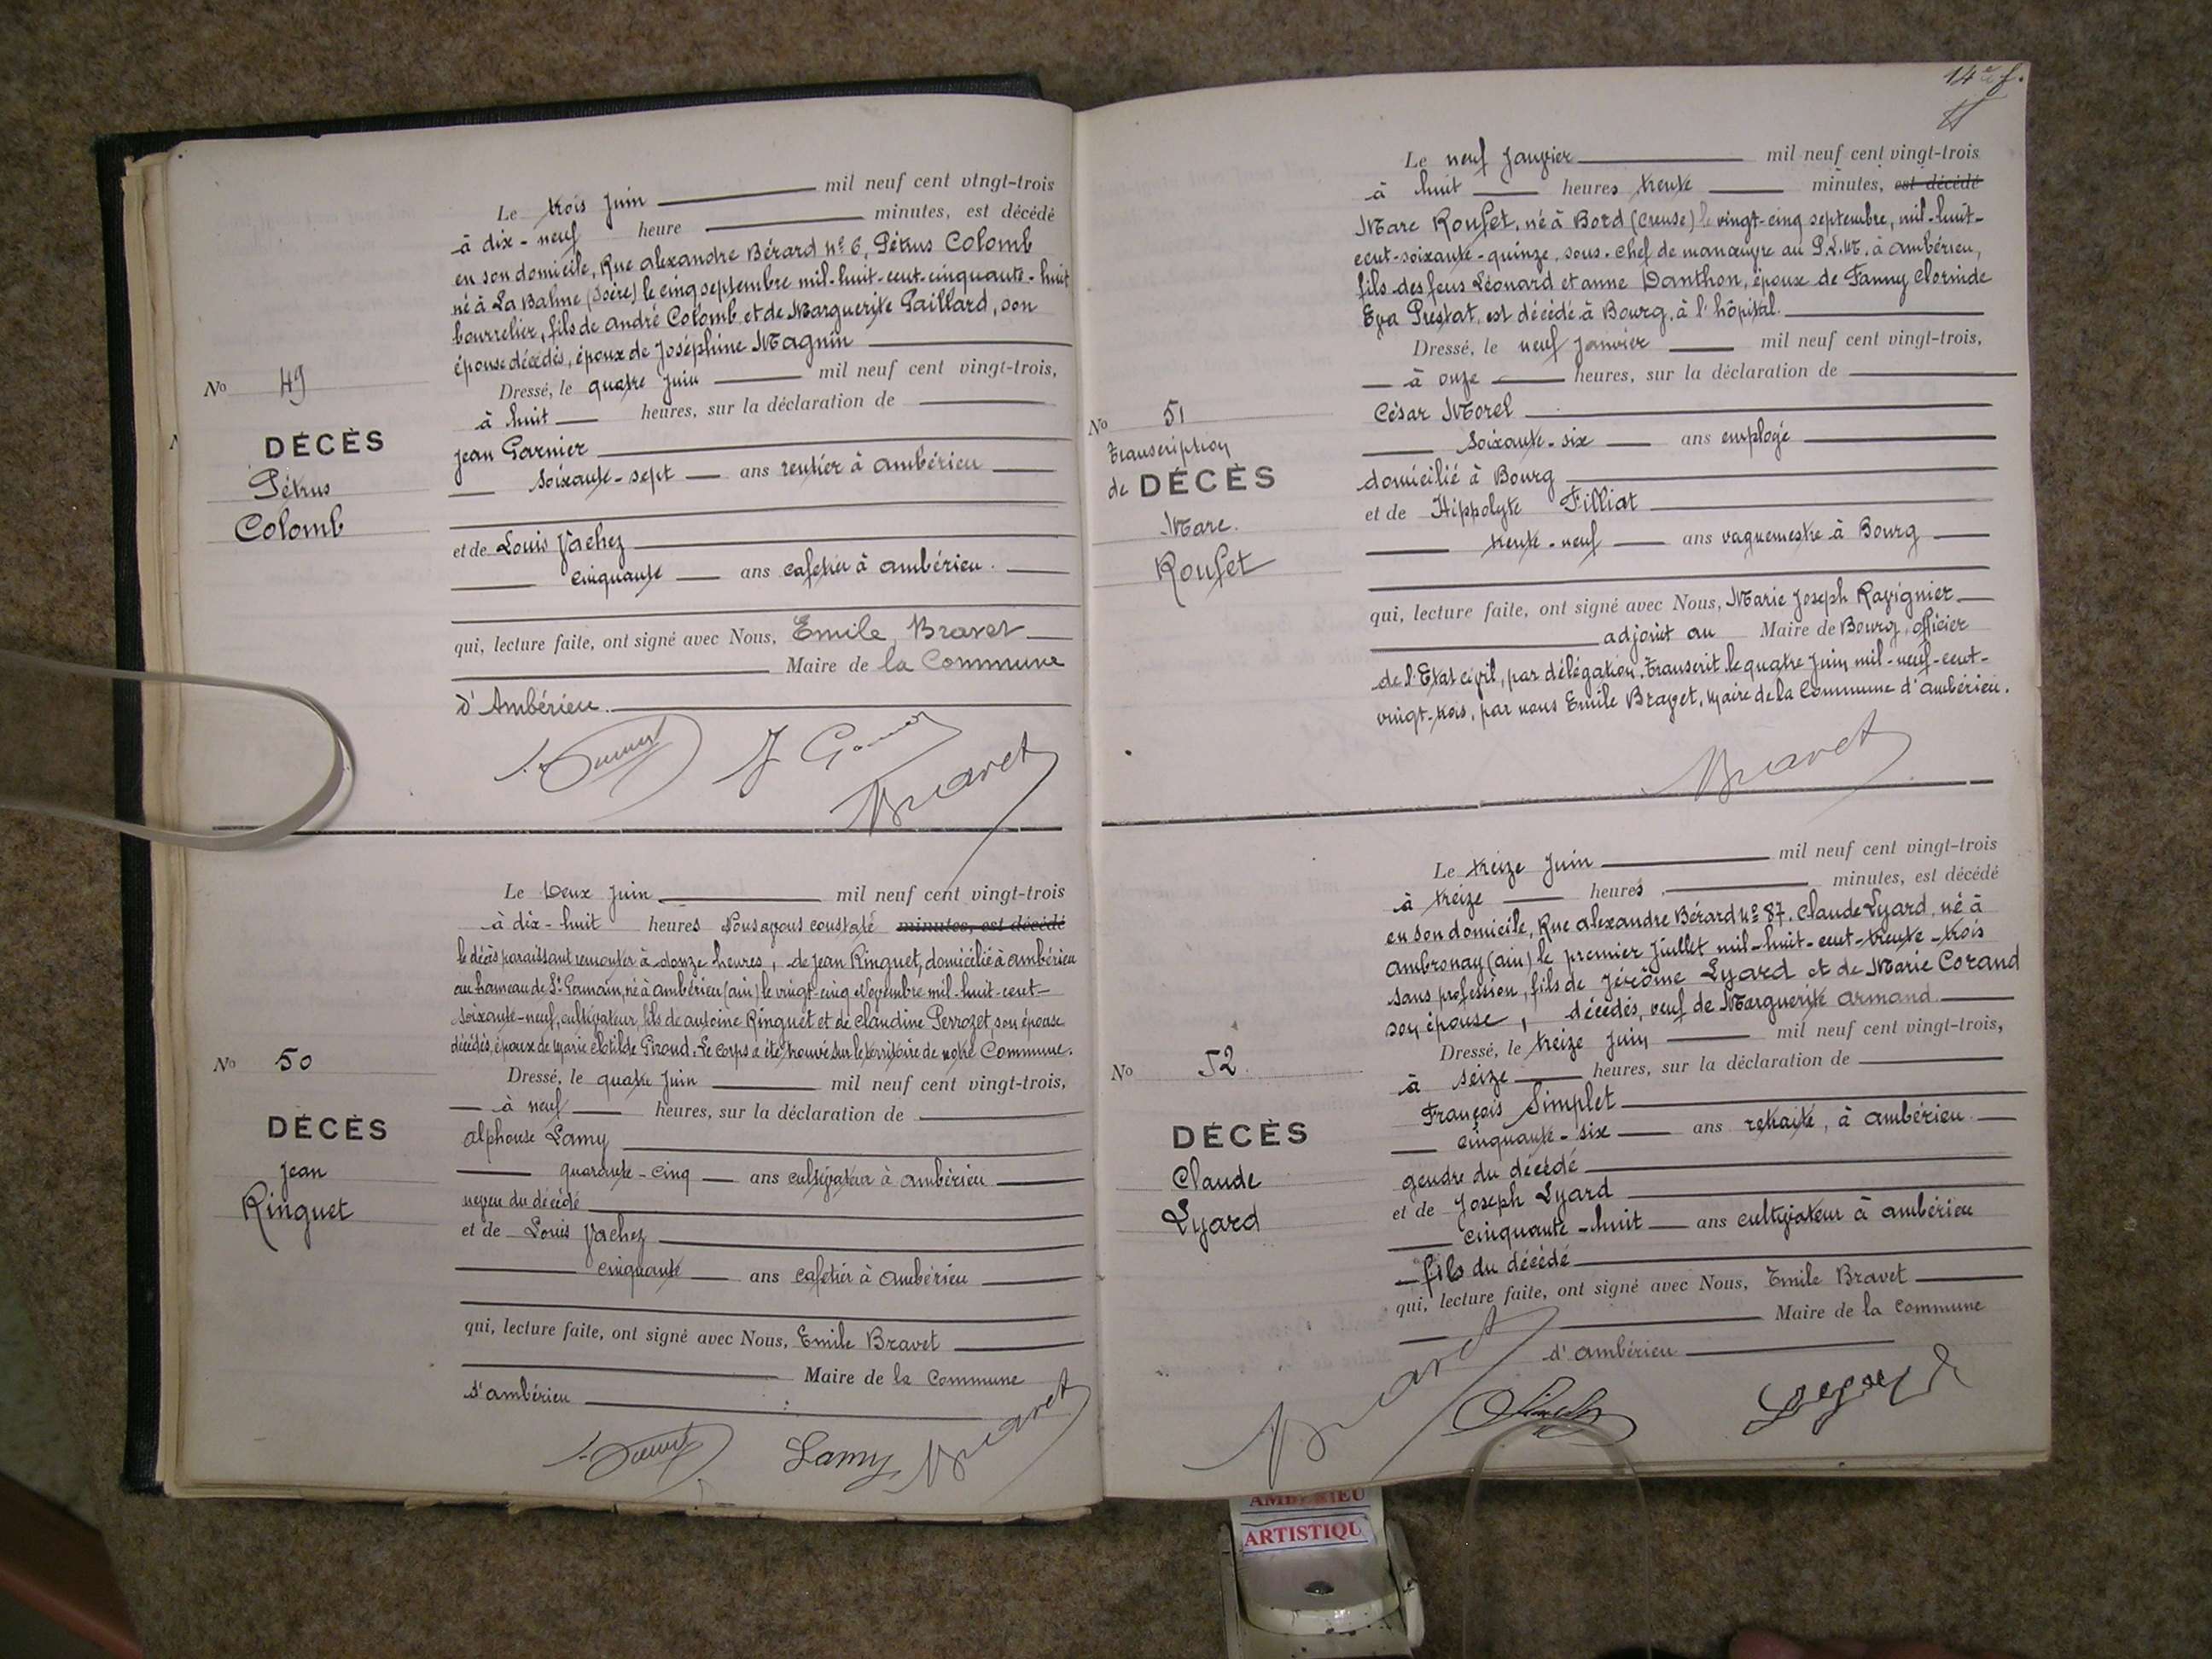 Le trois Juin mil neuf cent vingt-trois
à dix-neuf heure minutes, est décédé
en son domicile, Rue Alexandre Bérard nº 6, Pétrus Colomb
né à La Balme (Isère) le cinq septembre mil-huit-cent-cinquante-huit
bourrelier, fils de André Colomb et de Marguerite Paillard, son
épouse décédés, époux de Joséphine Magnin
Dressé, le quatre Juin mil neuf cent vingt-trois,
à huit heures, sur la déclaration de
Jean Garnier
soixante-sept ans rentier à Ambérieu
et de Louis Vachez
cinquante ans cafetier à Ambérieu.
qui, lecture faite, ont signé avec Nous, Emile Bravet
Maire de la Commune
d'Ambérieu.
No 49
DÉCÈS
Pétrus
Colomb
J Garnier
Bravet
Le Deux Juin mil neuf cent vingt-trois
à dix-huit heures Nous avons constaté minutes, est décédé
le décès paraissant remonter à douze heures, de Jean Ringuet, domicilié à Ambérieu
au hameau de St Germain, né à Ambérieu (Ain) le vingt-cinq Novembre mil-huit-cent-
soixante-neuf, cultivateur, fils de Antoine Ringuet et de Claudine Perrozet, son épouse
décédés, époux de Marie Clotilde Giroud. Le corps a été trouvé sur le territoire de notre Commune.
Dressé, le quatre Juin mil neuf cent vingt-trois,
à neuf heures, sur la déclaration de
Alphonse Lamy
quarante-cinq ans cultivateur à Ambérieu
neveu du décédé
et de Louis Vachez
cinquante ans cafetier à Ambérieu
qui, lecture faite, ont signé avec Nous, Emile Bravet
Maire de la Commune
d'Ambérieu
No 50
DÉCÈS
Jean
Ringuet
Lamy
Bravet
14e f.
Le neuf Janvier mil neuf cent vingt-trois
à huit heures trente minutes, est décédé
Marc Rousset, né à Bord (Creuse) le vingt-cinq septembre, mil-huit-
cent-soixante-quinze, sous-chef de manœuvre au P.L.M. à Ambérieu,
fils des feus Léonard et Anne Danthon, époux de Fanny Clorinde
Eva Prestat, est décédé à Bourg, à l'hôpital.
Dressé, le neuf Janvier mil neuf cent vingt-trois,
à onze heures, sur la déclaration de
César Morel
soixante-six ans employé
domicilié à Bourg
et de Hippolyte Filliat
trente-neuf ans vaguemestre à Bourg
qui, lecture faite, ont signé avec Nous, Marie Joseph Ravignier
adjoint au Maire de Bourg, officier
de l'Etat civil, par délégation. Transcrit le quatre Juin mil-neuf-cent-
vingt-trois, par nous Emile Bravet, Maire de la Commune d'Ambérieu.
No 51
Transcription
de DÉCÈS
Marc
Rousset
Bravet
Le treize Juin mil neuf cent vingt-trois
à treize heures minutes, est décédé
en son domicile, Rue Alexandre Bérard Nº 87, Claude Lyard, né à
Ambronay (Ain) le premier Juillet mil-huit-cent-trente-trois
sans profession, fils de Jérôme Lyard et de Marie Corand
son épouse, décédés, veuf de Marguerite Armand
Dressé, le treize Juin mil neuf cent vingt-trois,
à seize heures, sur la déclaration de
François Simplet
cinquante-six ans retraité, à Ambérieu
gendre du décédé
et de Joseph Lyard
cinquante-huit ans cultivateur à Ambérieu
fils du décédé
qui, lecture faite, ont signé avec Nous, Emile Bravet
Maire de la Commune
d'Ambérieu
No 52
DÉCÈS
Claude
Lyard
Bravet
AMBERIEU
ARTISTIQU